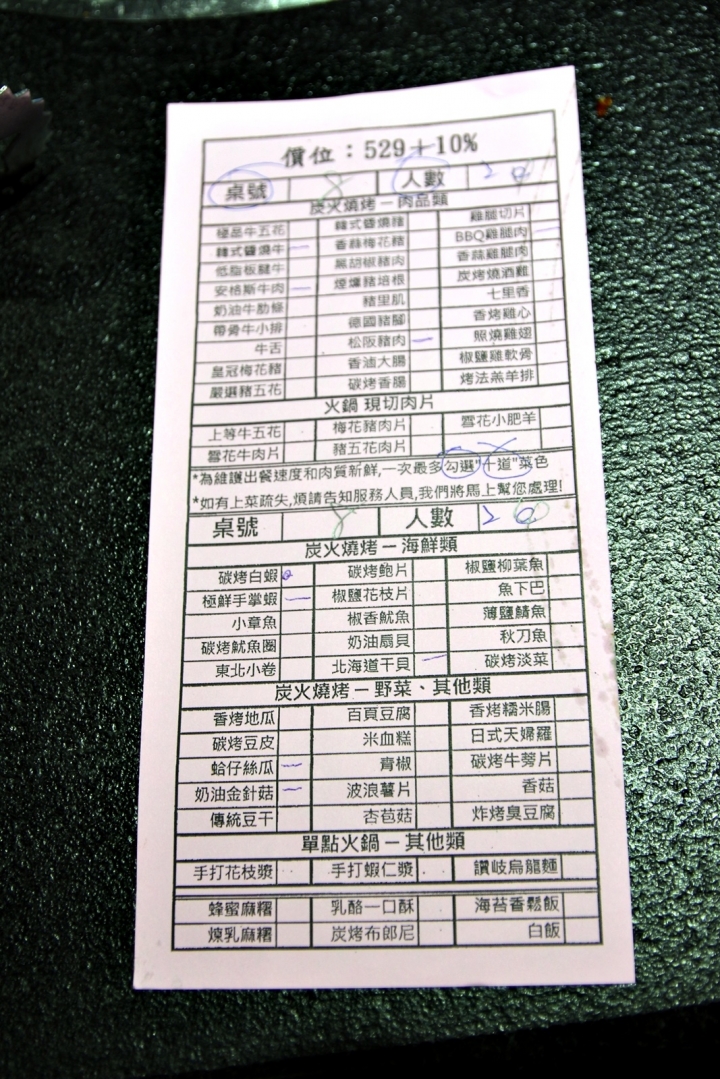 價位：529＋10%
桌號 8 人數 2 0
炭火燒烤－肉品類
極品牛五花 韓式醬燒豬 雞腿切片
韓式醬燒牛 － 香蒜梅花豬 BBQ雞腿肉 －
低脂板腱牛 黑胡椒豬肉 香蒜雞腿肉
安格斯牛肉 － 煙燻豬培根 炭烤燒酒雞
奶油牛肋條 豬里肌 七里香
帶骨牛小排 德國豬腳 香烤雞心
牛舌 松阪豬肉 － 照燒雞翅
皇冠梅花豬 香滷大腸 椒鹽雞軟骨
嚴選豬五花 碳烤香腸 烤法羔羊排
火鍋 現切肉片
上等牛五花 梅花豬肉片 雪花小肥羊
雪花牛肉片 豬五花肉片
*為維護出餐速度和肉質新鮮,一次最多勾選"十道"菜色
*如有上菜疏失,煩請告知服務人員,我們將馬上幫您處理!
桌號 8 人數 2 0
炭火燒烤－海鮮類
碳烤白蝦 碳烤鮑片 椒鹽柳葉魚
極鮮手掌蝦 － 椒鹽花枝片 魚下巴
小章魚 椒香魷魚 薄鹽鯖魚
碳烤魷魚圈 奶油扇貝 秋刀魚
東北小卷 北海道干貝 － 碳烤淡菜
炭火燒烤－野菜、其他類
香烤地瓜 百頁豆腐 香烤糯米腸
碳烤豆皮 米血糕 日式天婦羅
蛤仔絲瓜 － 青椒 碳烤牛蒡片
奶油金針菇 － 波浪薯片 香菇
傳統豆干 杏苞菇 炸烤臭豆腐
單點火鍋－其他類
手打花枝漿 手打蝦仁漿 讚岐烏龍麵
蜂蜜麻糬 乳酪一口酥 海苔香鬆飯
煉乳麻糬 炭烤布郎尼 白飯